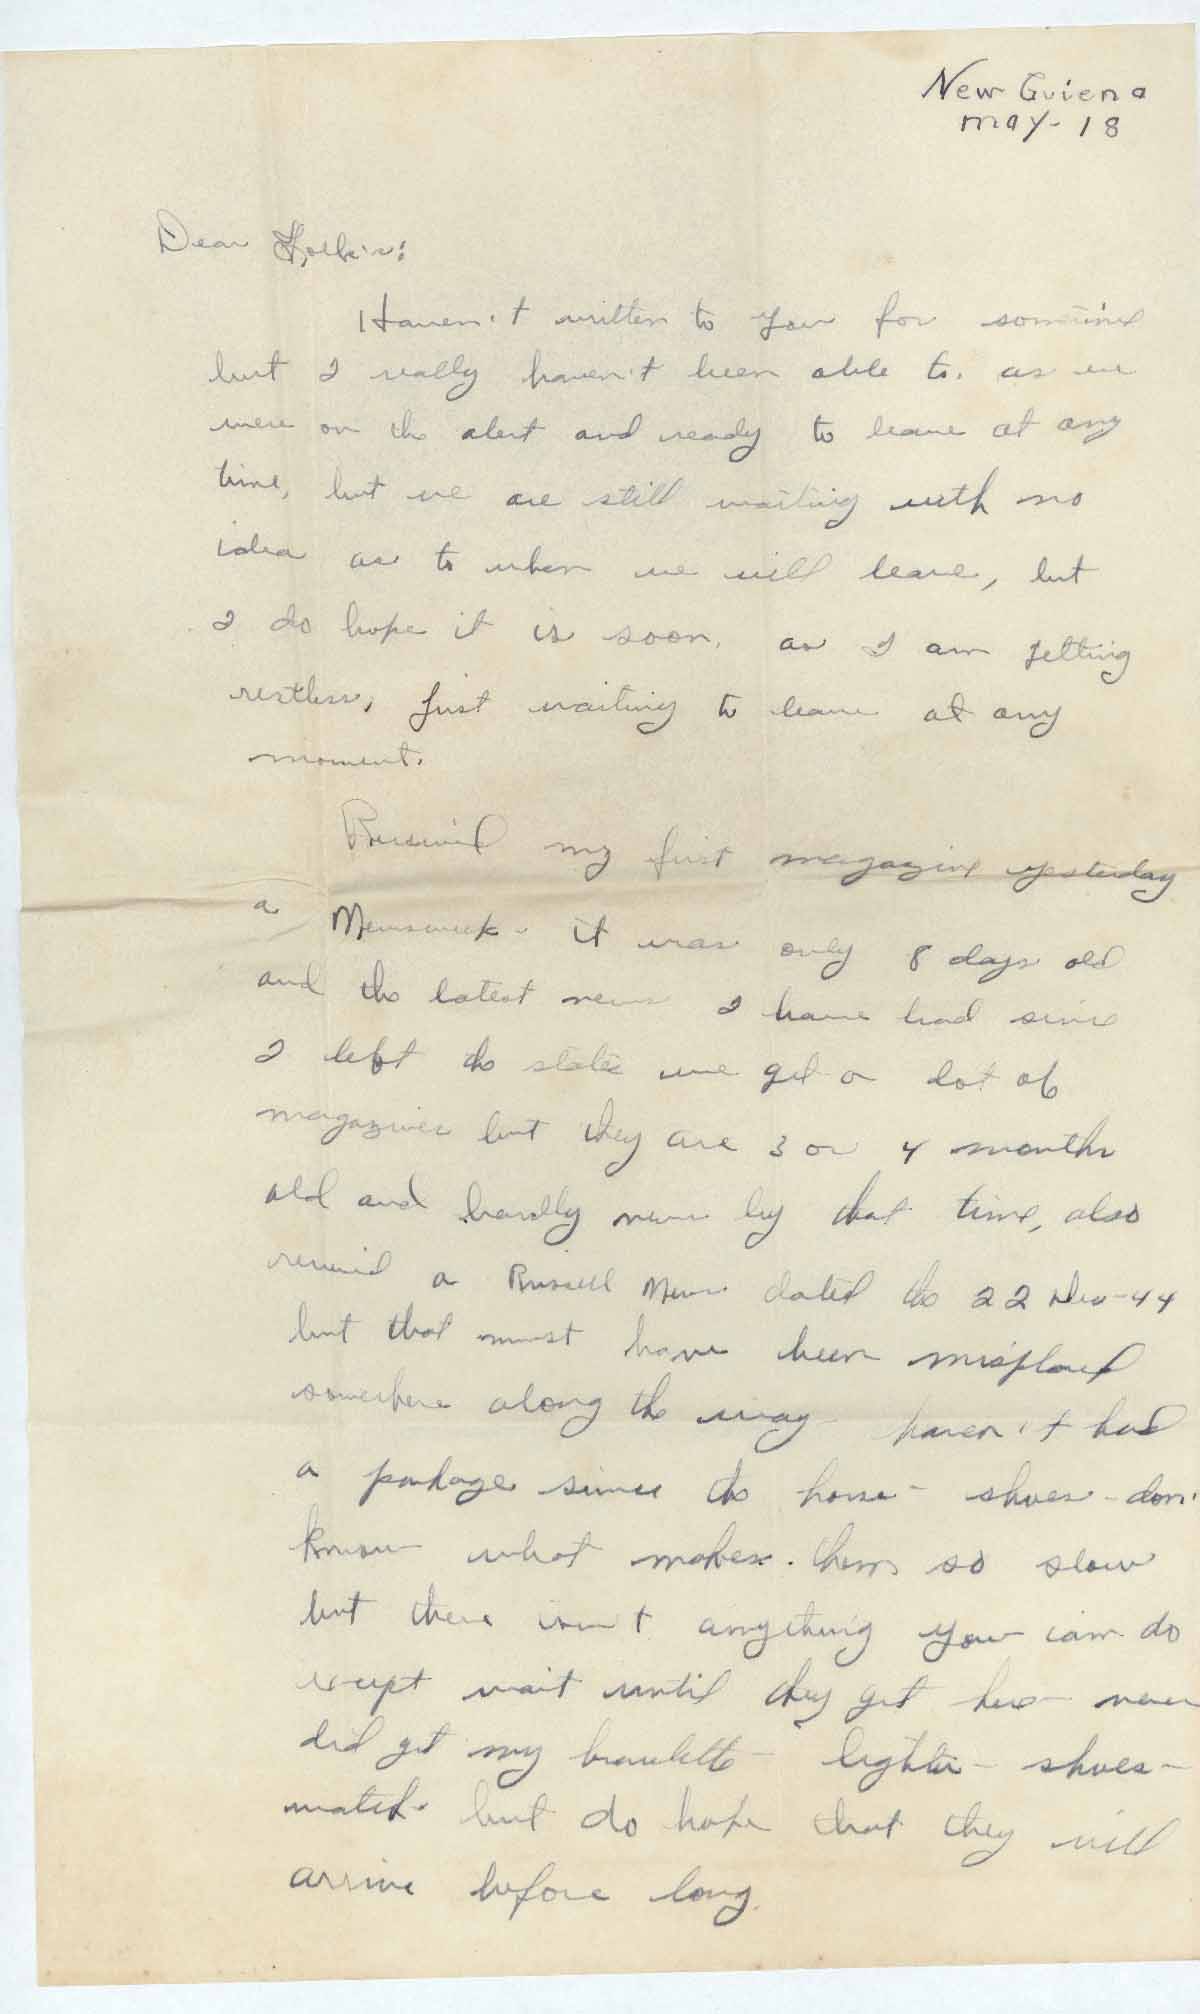 New Guiena
May-18
Dear Folks:
Haven't written to you for sometime
but I really haven't been able to. as we
were on the alert and ready to leave at any
time, but we are still waiting with no
idea as to when we will leave, but
I do hope it is soon, as I am getting
restless, just waiting to leave at any
moment.
Received my first magazine yesterday
a Newsweek - it was only 8 days old
and the latest news I have had since
I left the states we get a lot of
magazines but they are 3 or 4 months
old and hardly news by that time, also
received a Russell News dated the 22 Dec-44
but that must have been misplaced
somewhere along the way - haven't had
a package since the horse-shoes - don't
know what makes them so slow
but there isn't anything you can do
except wait until they get here - never
did get my bracelette - lighter - shoes -
watch - but do hope that they will
arrive before long.